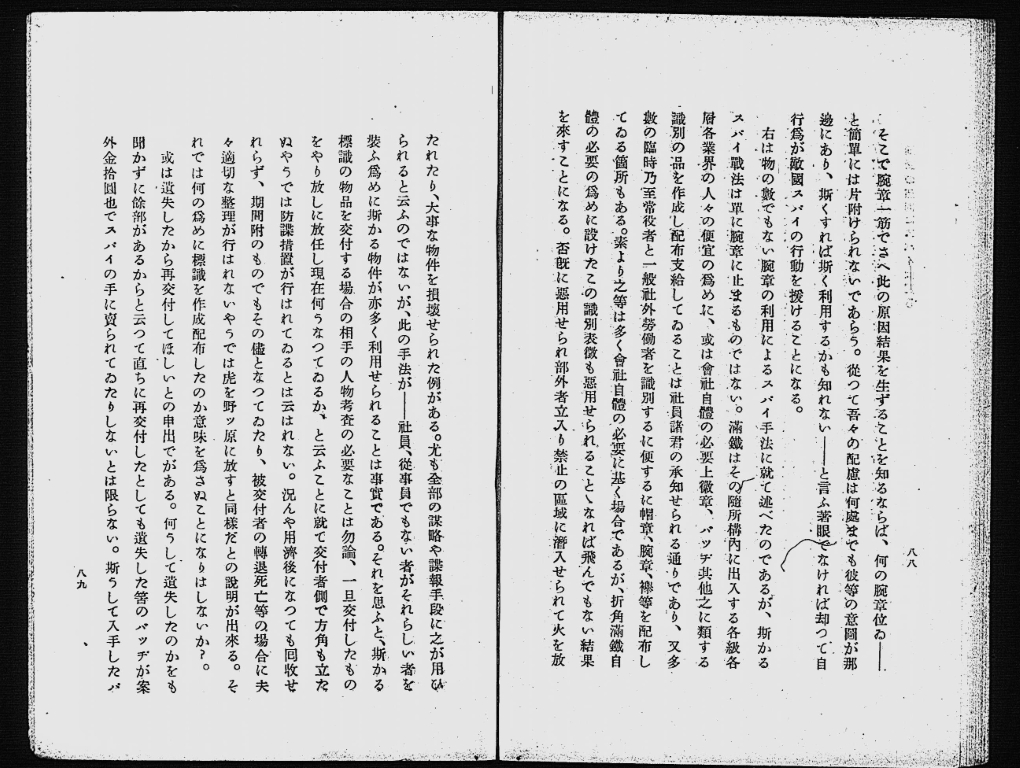 八八
そこで腕章一筋でさへ此の原因結果を生ずることを知るならば、何の腕章位ゐ――
と簡單には片附けられないであらう。從つて吾々の配慮は何處までも彼等の意圖が那
邊にあり、斯くすれば斯く利用するかも知れない――と言ふ著眼でなければ却つて自
行爲が敵國スパイの行動を援けることになる。
右は物の數でもない腕章の利用によるスパイ手法に就て述べたのであるが、斯かる
スパイ戰法は單に腕章に止まるものではない。滿鐵はその隨所構內に出入する各級各
層各業界の人々の便宜の爲めに、或は會社自體の必要上徽章、バッヂ其他之に類する
識別の品を作成し配布支給してゐることは社員諸君の承知せられる通りであり、又多
數の臨時乃至常役者と一般社外勞働者を識別するに便するに帽章、腕章、襷等を配布し
てゐる箇所もある。素より之等は多く會社自體の必要に基く場合であるが、折角滿鐵自
體の必要の爲めに設けたこの識別表徵も惡用せられることゝなれば飛んでもない結果
を來すことになる。否既に惡用せられ部外者立入り禁止の區域に潛入せられて火を放
たれたり、大事な物件を損壞せられた例がある。尤も全部の謀略や諜報手段に之が用ひ
られると云ふのではないが、此の手法が――社員、從事員でもない者がそれらしい者を
裝ふ爲めに斯かる物件が亦多く利用せられることは事實である。それを思ふと、斯かる
標識の物品を交付する場合の相手の人物考査の必要なことは勿論、一旦交付したもの
をやり放しに放任し現在何うなつてゐるか、と云ふことに就て交付者側で方角も立た
ぬやうでは防諜措置が行はれてゐるとは云はれない。況んや用濟後になつても回收せ
れらず、期間附のものでもその儘となつてゐたり、被交付者の轉退死亡等の場合に夫
々適切な整理が行はれないやうでは虎を野ッ原に放すと同樣だとの說明が出來る。そ
れでは何の爲めに標識を作成配布したのか意味を爲さぬことになりはしないか?。
或は遺失したから再交付してほしいとの申出でがある。何うして遺失したのかをも
聞かずに餘部があるからと云つて直ちに再交付したとしても遺失した筈のバッヂが案
外金拾圓也でスパイの手に賣られてゐたりしないとは限らない。斯うして入手したバ
八九